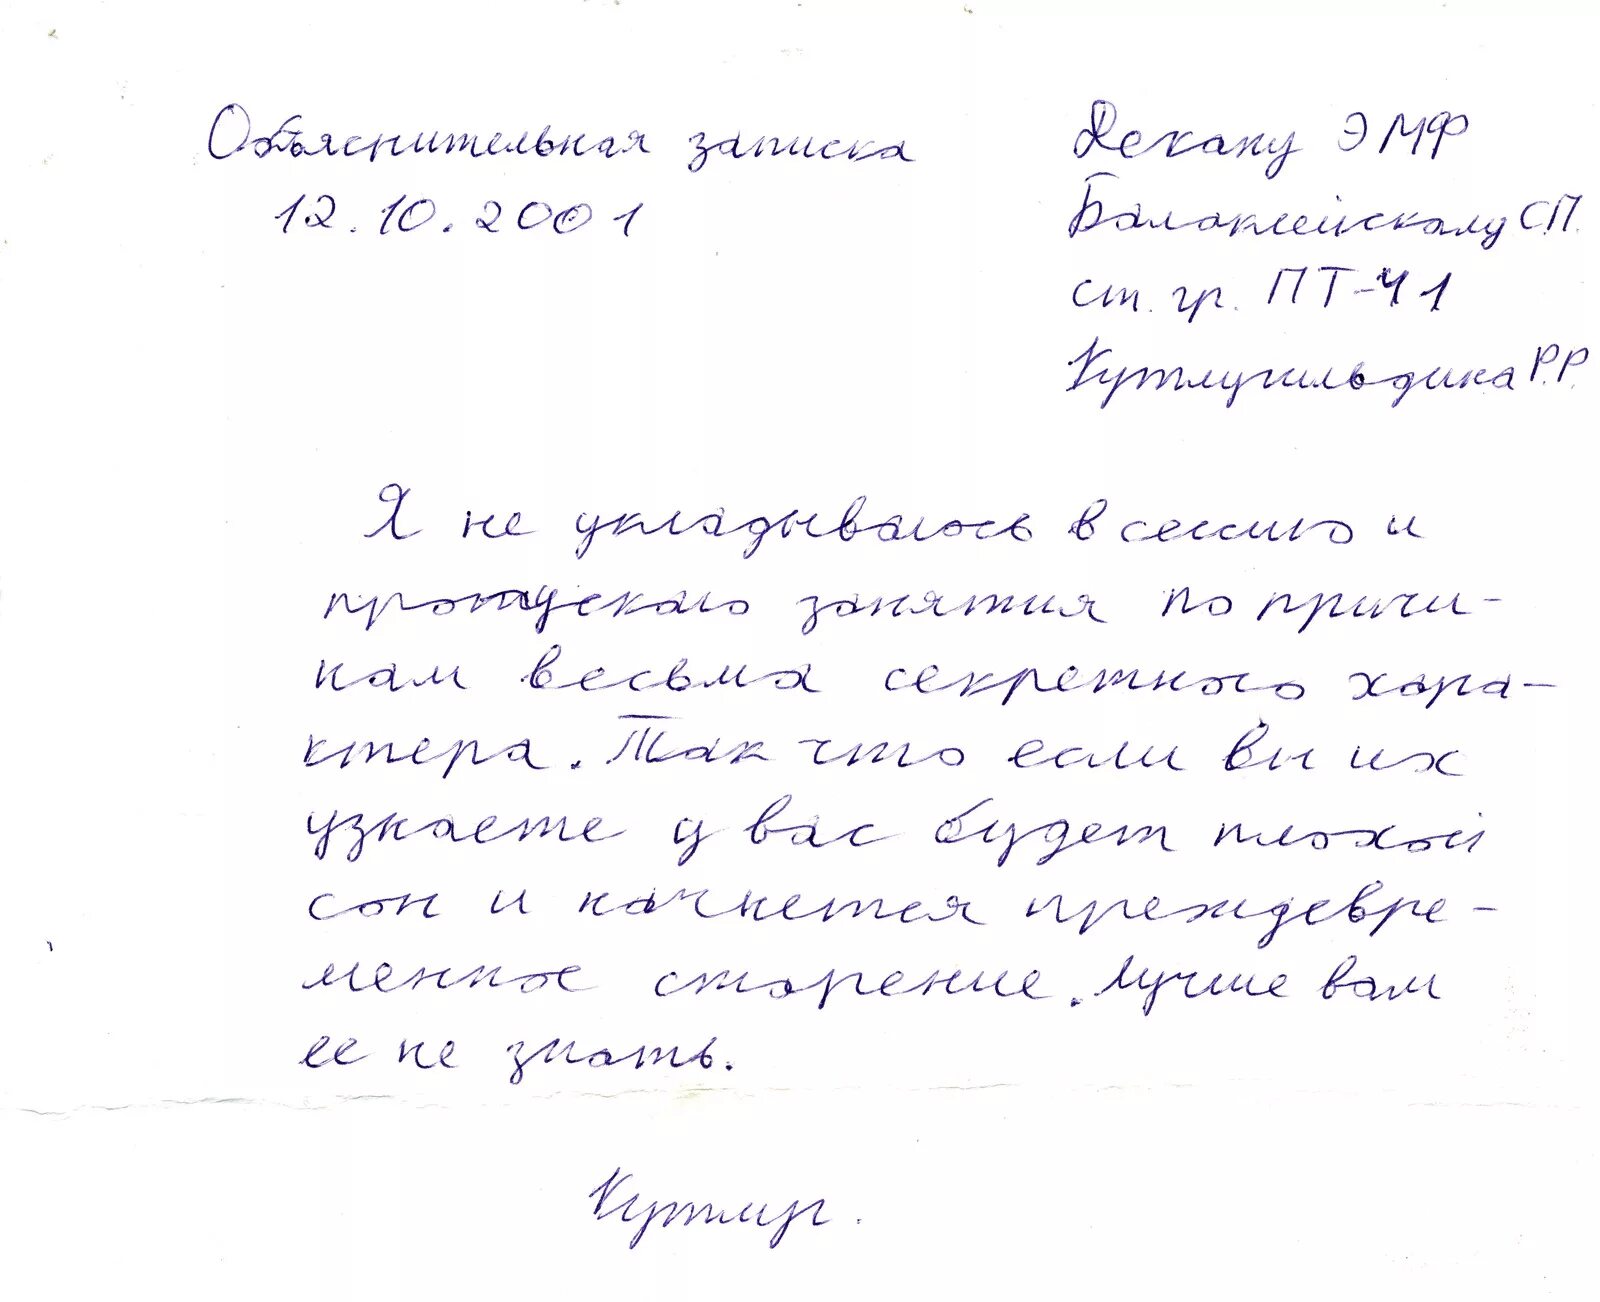 Объяснительная записка
12.10.2001
Декану ЭМФ
Балаклейскому С.П.
ст. гр. ПТ-41
Кутлугильдина Р.Р.
Я не укладываюсь в сессию и
пропускаю занятия по причи-
нам весьма секретного хара-
ктера. Так что если вы их
узнаете у вас будет плохой
сон и начнется преждевре-
менное старение. Лучше вам
ее не знать.
Кутлуг.